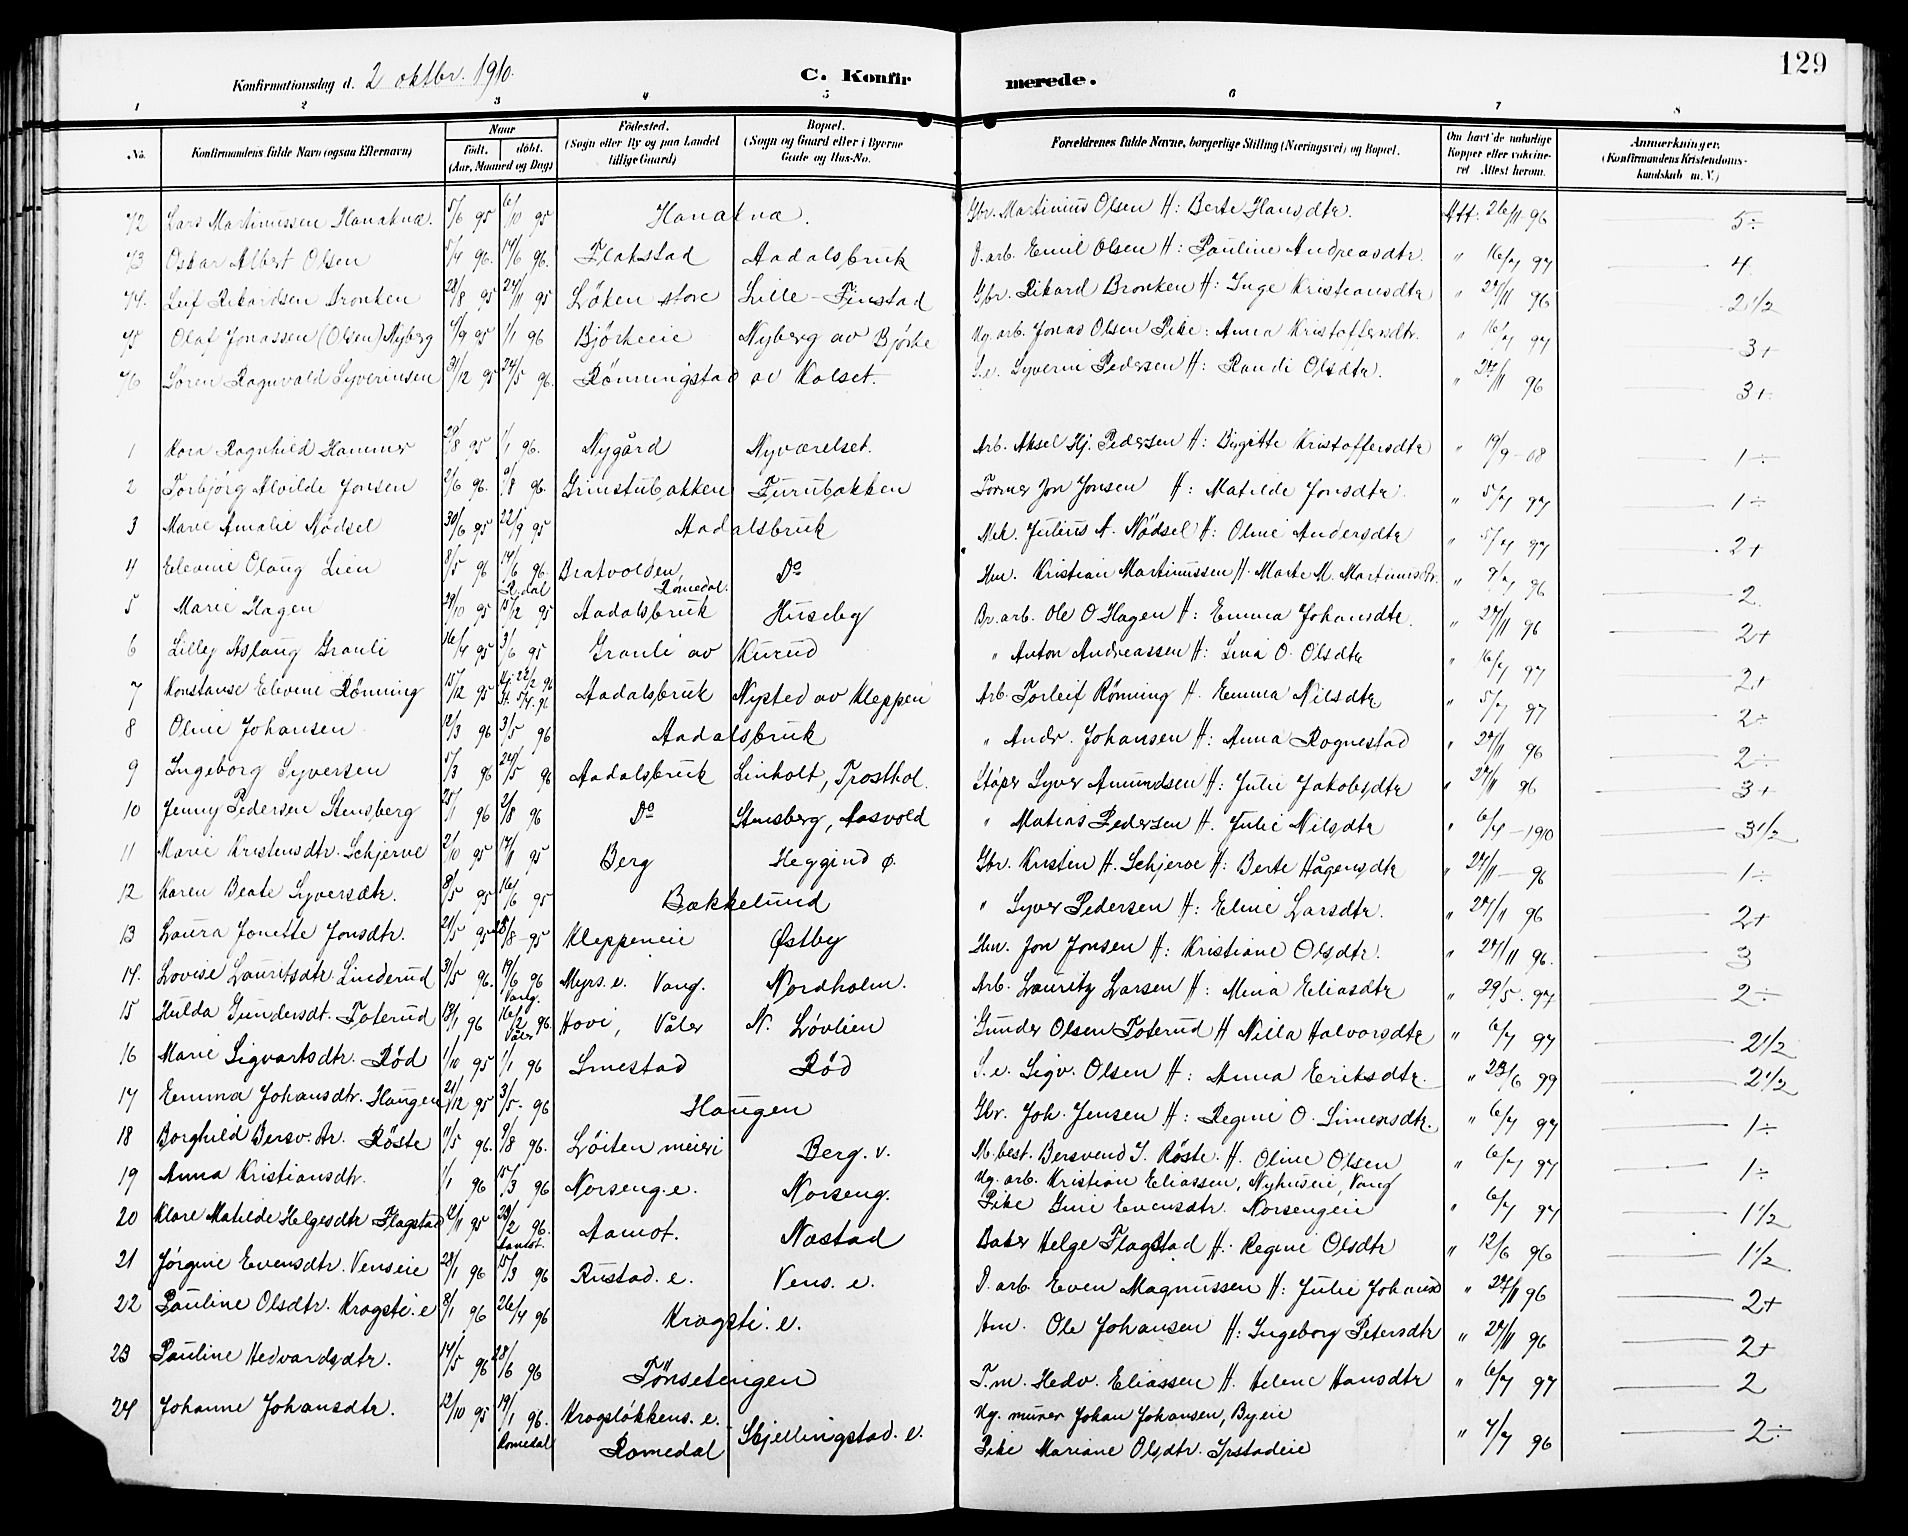 129
Konfirmationsdag d. 2 oktbr. 1910.
C. Konfirmerede.
1 2 3 4 5 6 7 8
No. Konfirmandens fulde Navn (ogsaa Efternavn) Naar født. døbt. (Aar, Maaned og Dag) Fødested. (Sogn eller By og paa Landet tillige Gaard) Bopæl. (Sogn og Gaard eller i Byerne Gade og Hus-No. Forældrenes fulde Navne, borgerlige Stilling (Næringsvei) og Bopæl. Om havt de naturlige Kopper eller vakcineret Attest herom. Anmerkninger. (Konfirmandens Kristendomskundskab m. V.)
72 Lars Martinussen Hanaknæ. 5/6 95 6/10 95 Hanaknæ. Gbr. Martinius Olsen H: Berte Hansdtr. Att: 26/11 96 5÷
73 Oskar Albert Olsen 5/4 96. 14/6 96. Flakstad Aadalsbruk D. arb. Emil Olsen H: Pauline Andreasdtr. " 16/7 97 4
74. Leif Rikardsen Bronken 28/8 95 24/11 95 Løken store Lille-Finstad Gbr. Rikard Bronken H: Inge Kristiansdtr " 27/11 96 2 1/2
75 Olaf Jonassen (Olsen) Nyberg 4/9 95 1/1 96 Bjørkeeie Nyberg av Bjørke Ug. arb. Jonas Olsen Pike: Anna Kristoffersdtr. " 16/7 97 3+
76 Søren Ragnvald Syverinsen 31/12 95 24/5 96. Rønningstad av Kolset. S.e. Syverin Pedersen H: Randi Olsdtr. " 27/11 96 3+
1 Kora Ragnhild Hammer 29/8 95 1/1 96. Nygård Nyværelset. Arb. Aksel Hj. Pedersen H: Birgitte Kristoffersdtr " 19/9-08 1÷
2 Torbjörg Alvilde Jonsen 2/6 96. 9/8 96. Grinstubakken Furubakken Former Jon Jonsen H: Matilde Jonsdtr. " 5/7 97 1÷
3 Marie Amalie Nødsel 30/6 95 22/9 95 Aadalsbruk Mek. Julius A. Nödsel H: Oline Andersdtr " 5/7 97 2+
4 Elevine Olaug Lien 8/5 96 14/6 96. R.dal Bratvolden, Romedal. Do Hm. Kristian Martinussen H. Marte M. Martinusdtr. " 9/7 96 2.
5 Marie Hagen 29/10 95 15/2 95 Aadalsbruk Huseby Br. arb. Ole O Hagen H: Emma Johansdtr. " 27/11 96 2+
6 Lilly Aslaug Granli 16/4 95 3/6 95 Granli av Kurud " Anton Andreassen H: Lina O. Olsdtr " 16/7 97 2+
7 Konstanse Elevine Rønning 15/12 95 Hj. 22/2 96 St. 5/4. 96 Aadalsbruk Nysted av Kleppen Arb. Torleif Rønning H. Emma Nilsdtr " 5/7 97 2÷
8 Oline Johansen 12/3 96 3/5 96 Aadalsbruk " Andr. Johansen H: Anna Rognestad " 27/11 96 2÷
9 Ingeborg Syversen 5/3 96 24/5 96 Aadalsbruk Linholt, Trosthol. Støper Syver Amundsen H: Julie Jakobsdtr " 27/11 96 3+
10 Jenny Pedersen Stensberg 25/1 96 2/8 96 Do Stensberg, Aasvold " Matias Pedersen H. Julie Nilsdtr " 6/4-1910 3 1/2
11 Marie Kristensdtr. Schjerve 2/10 95 17/11 95 Berg Heggind ø. Gbr. Kristen H. Schjerve H: Berte Hågensdtr " 27/11-96 1÷
12 Karen Beate Syversdtr. 8/5 95 16/6 95 Bakkelund " Syver Pedersen H: Eline Larsdtr. " 27/11 96 2+
13 Laura Jonette Jonsdtr. 21/5 95 25/8 95 Kleppeneie Østby Hm. Jon Jonsen H: Kristiane Olsdtr. " 27/11 96. 3
14. Lovise Lauritsdtr. Linderud 31/5 96. 14/6 96 Vang. Myrs. e. Vang. Nordholm. Arb. Lauritz Larsen H: Mina Eliasdtr " 29/5. 97 2÷
15 Hulda Gundersdt. Toterud 13/1 96 16/2 96. Våler Hovi, Våler N. Løvlien Gunder Olsen Toterud H Nilla Halvorsdtr " 6/7 97 2 1/2
16 Marie Sigvartsdtr. Rød 1/10 95 1/1 96 Smestad Rød S. e. Sigv. Olsen H: Anna Eriksdtr. " 23/6 99 2 1/2
17 Emma Johansdtr. Haugen 21/12 95 3/5. 96 Haugen Gbr. Joh. Jensen H: Regine O. Simensdtr. " 6/7 97 1÷
18 Borghild Bersv. dtr. Röste 11/5 96. 9/8 96. Løiten meieri Berg. v. M. best. Bersvend I. Röste. H. Oline Olsen " 6/7 97 1÷
19 Anna Kristiansdtr. 1/1 96 15/3 96 Norseng. e. Norseng. Ug. arb. Kristian Eliassen, Nyhuseie, Vang
Pike Gine Evensdtr. Norsengeie " 6/7 97 1 1/2
20 Klare Matilde Helgesdtr Flagstad 12/11 95 23/2 96. Aamot. Aamot. Næstad Baker Helge Flagstad H: Regine Olsdtr " 12/6 96 1 1/2
21 Jørgine Evensdtr. Venseie 28/1 96 15/3 96 Rustad. e. Vens. e. D. arb. Even Magnussen H: Julie Johansd " 27/11 96 2+
22 Pauline Olsdtr. Kragsti. e 8/1 96 26/4 96 Kragsti. e. Hm. Ole Johansen H: Ingeborg Petersdtr " 27/11 96 2+
23 Pauline Hedvardsdtr. 14/5 96 28/6 96 Tönsetengen T.m. Hedv. Eliassen H. Helene Hansdtr " 6/7 97 2
24 Johanne Johansdtr. 12/10 95 19/1 96. Romedal Kragsløkkens. e. Romedal Skjellingstad. e. Ug. murer Johan Johansen, Byeie
Pike Mariane Olsdtr. Ipstadeie " 7/7 96 2÷